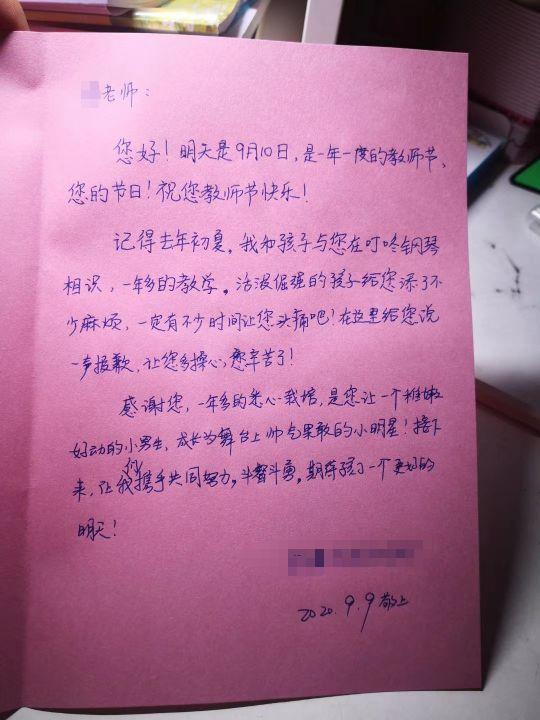 老师：
您好！明天是9月10日，是一年一度的教师节、
您的节日！祝您教师节快乐！
记得去年初夏，我和孩子与您在叮咚钢琴
相识，一年多的教学。活泼倔强的孩子给您添了不
少麻烦，一定有不少时间让您头痛吧！在这里给您说
一声抱歉，让您多操心，您辛苦了！
感谢您，一年多的悉心栽培，是您让一个稚嫩
好动的小男生，成长为舞台上帅气果敢的小明星！接下
来，让我们携手共同努力。斗智斗勇。期待孩子一个更好的
明天！
2020.9.9 敬上